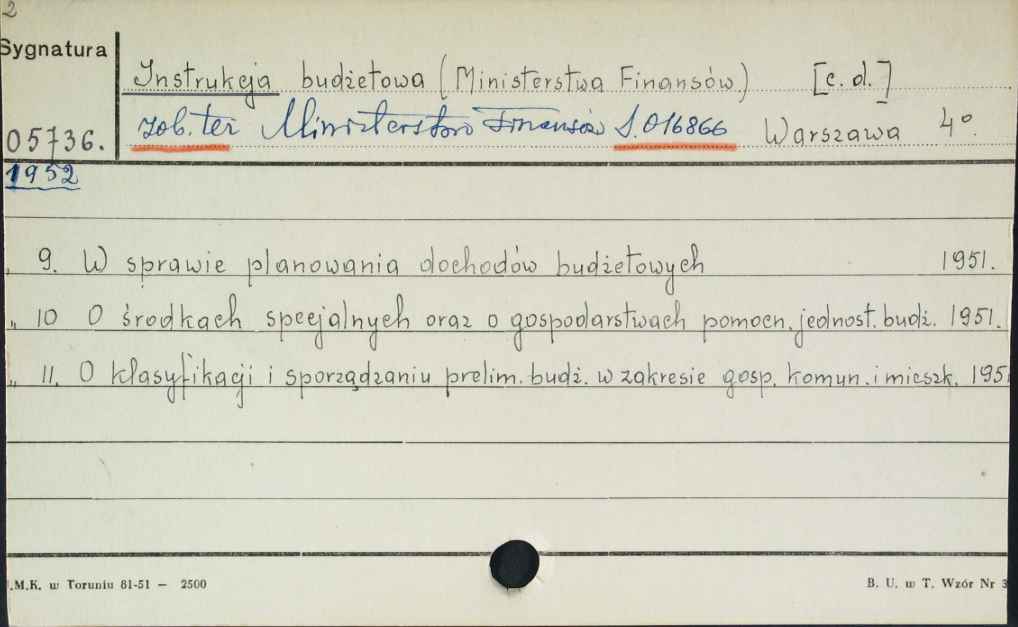 2
Sygnatura
Instrukcja budżetowa (Ministerstwa Finansów) [c. d.]
05736. zob. też Ministerstwo Finansów S. 016866 Warszawa 4°.
1952
„ 9. W sprawie planowania dochodów budżetowych 1951.
„ 10 O środkach specjalnych oraz o gospodarstwach pomocn. jednost. budż. 1951.
„ 11. O klasyfikacji i sporządzaniu prelim. budż. w zakresie gosp. komun. i mieszk. 195
.M.K. w Toruniu 81-51 — 2500 B. U. w T. Wzór Nr 3